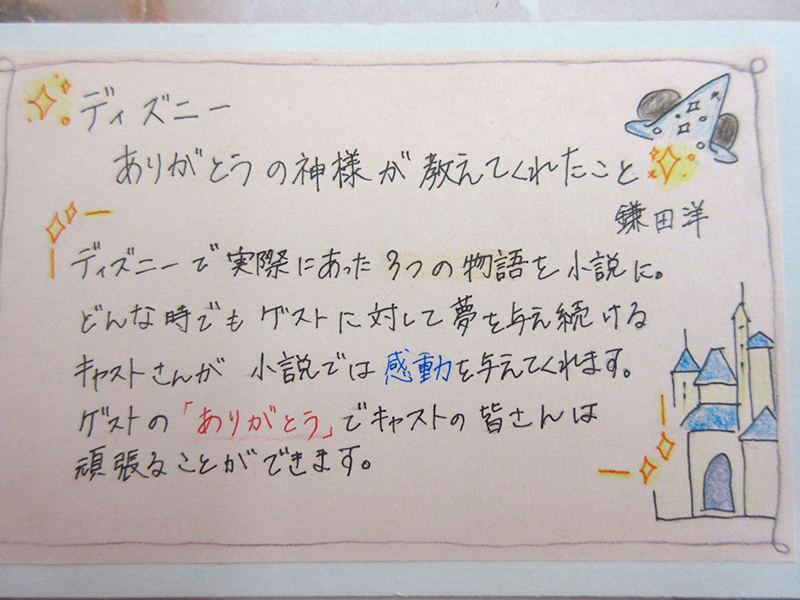 ディズニー
ありがとうの神様が教えてくれたこと
鎌田洋
ディズニーで実際にあった3つの物語を小説に。
どんな時でもゲストに対して夢を与え続ける
キャストさんが 小説では感動を与えてくれます。
ゲストの「ありがとう」でキャストの皆さんは
頑張ることができます。